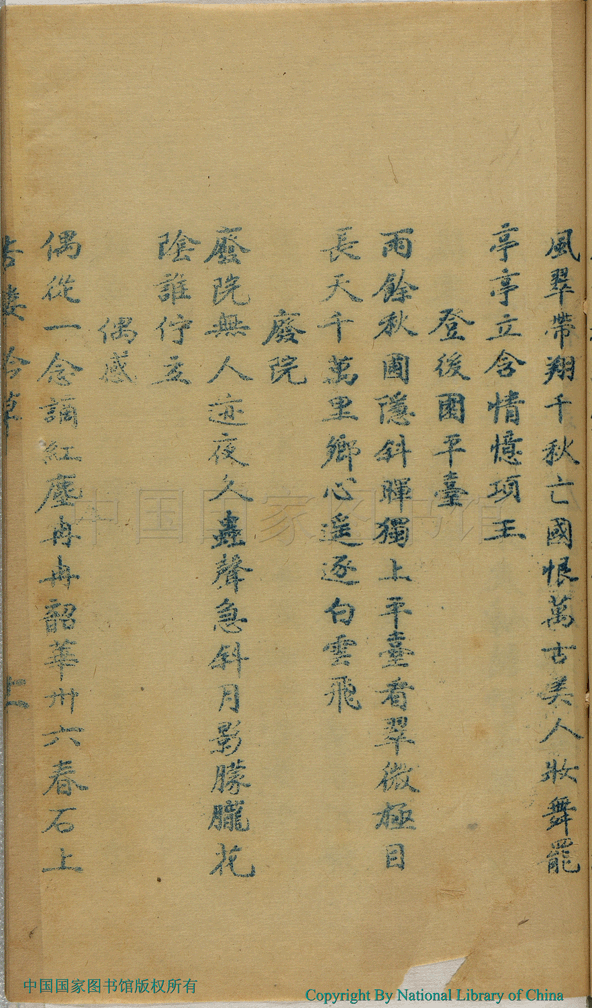 風翠帶翔千秋亡國恨萬古美人妝舞罷
亭亭立含情憶項王
登後園平臺
雨餘秋圃隱斜暉獨上平臺看翠微極目
長天千萬里鄉心遥逐白雲飛
廢院
廢院無人迹夜久蟲聲急斜月影朦朧花
陰誰佇立
偶感
偶從一念謫紅塵冉冉韶華卅六春石上
吟草
上
中国国家图书馆
中国国家图书馆版权所有
Copyright By National Library of China